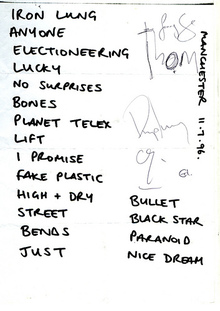 IRON LUNG
ANYONE
ELECTIONEERING
LUCKY
NO SURPRISES
BONES
PLANET TELEX
LIFT
I PROMISE
FAKE PLASTIC
HIGH + DRY
STREET
BENDS
JUST
BULLET
BLACK STAR
PARANOID
NICE DREAM
Thom
MANCHESTER 11-7-96.